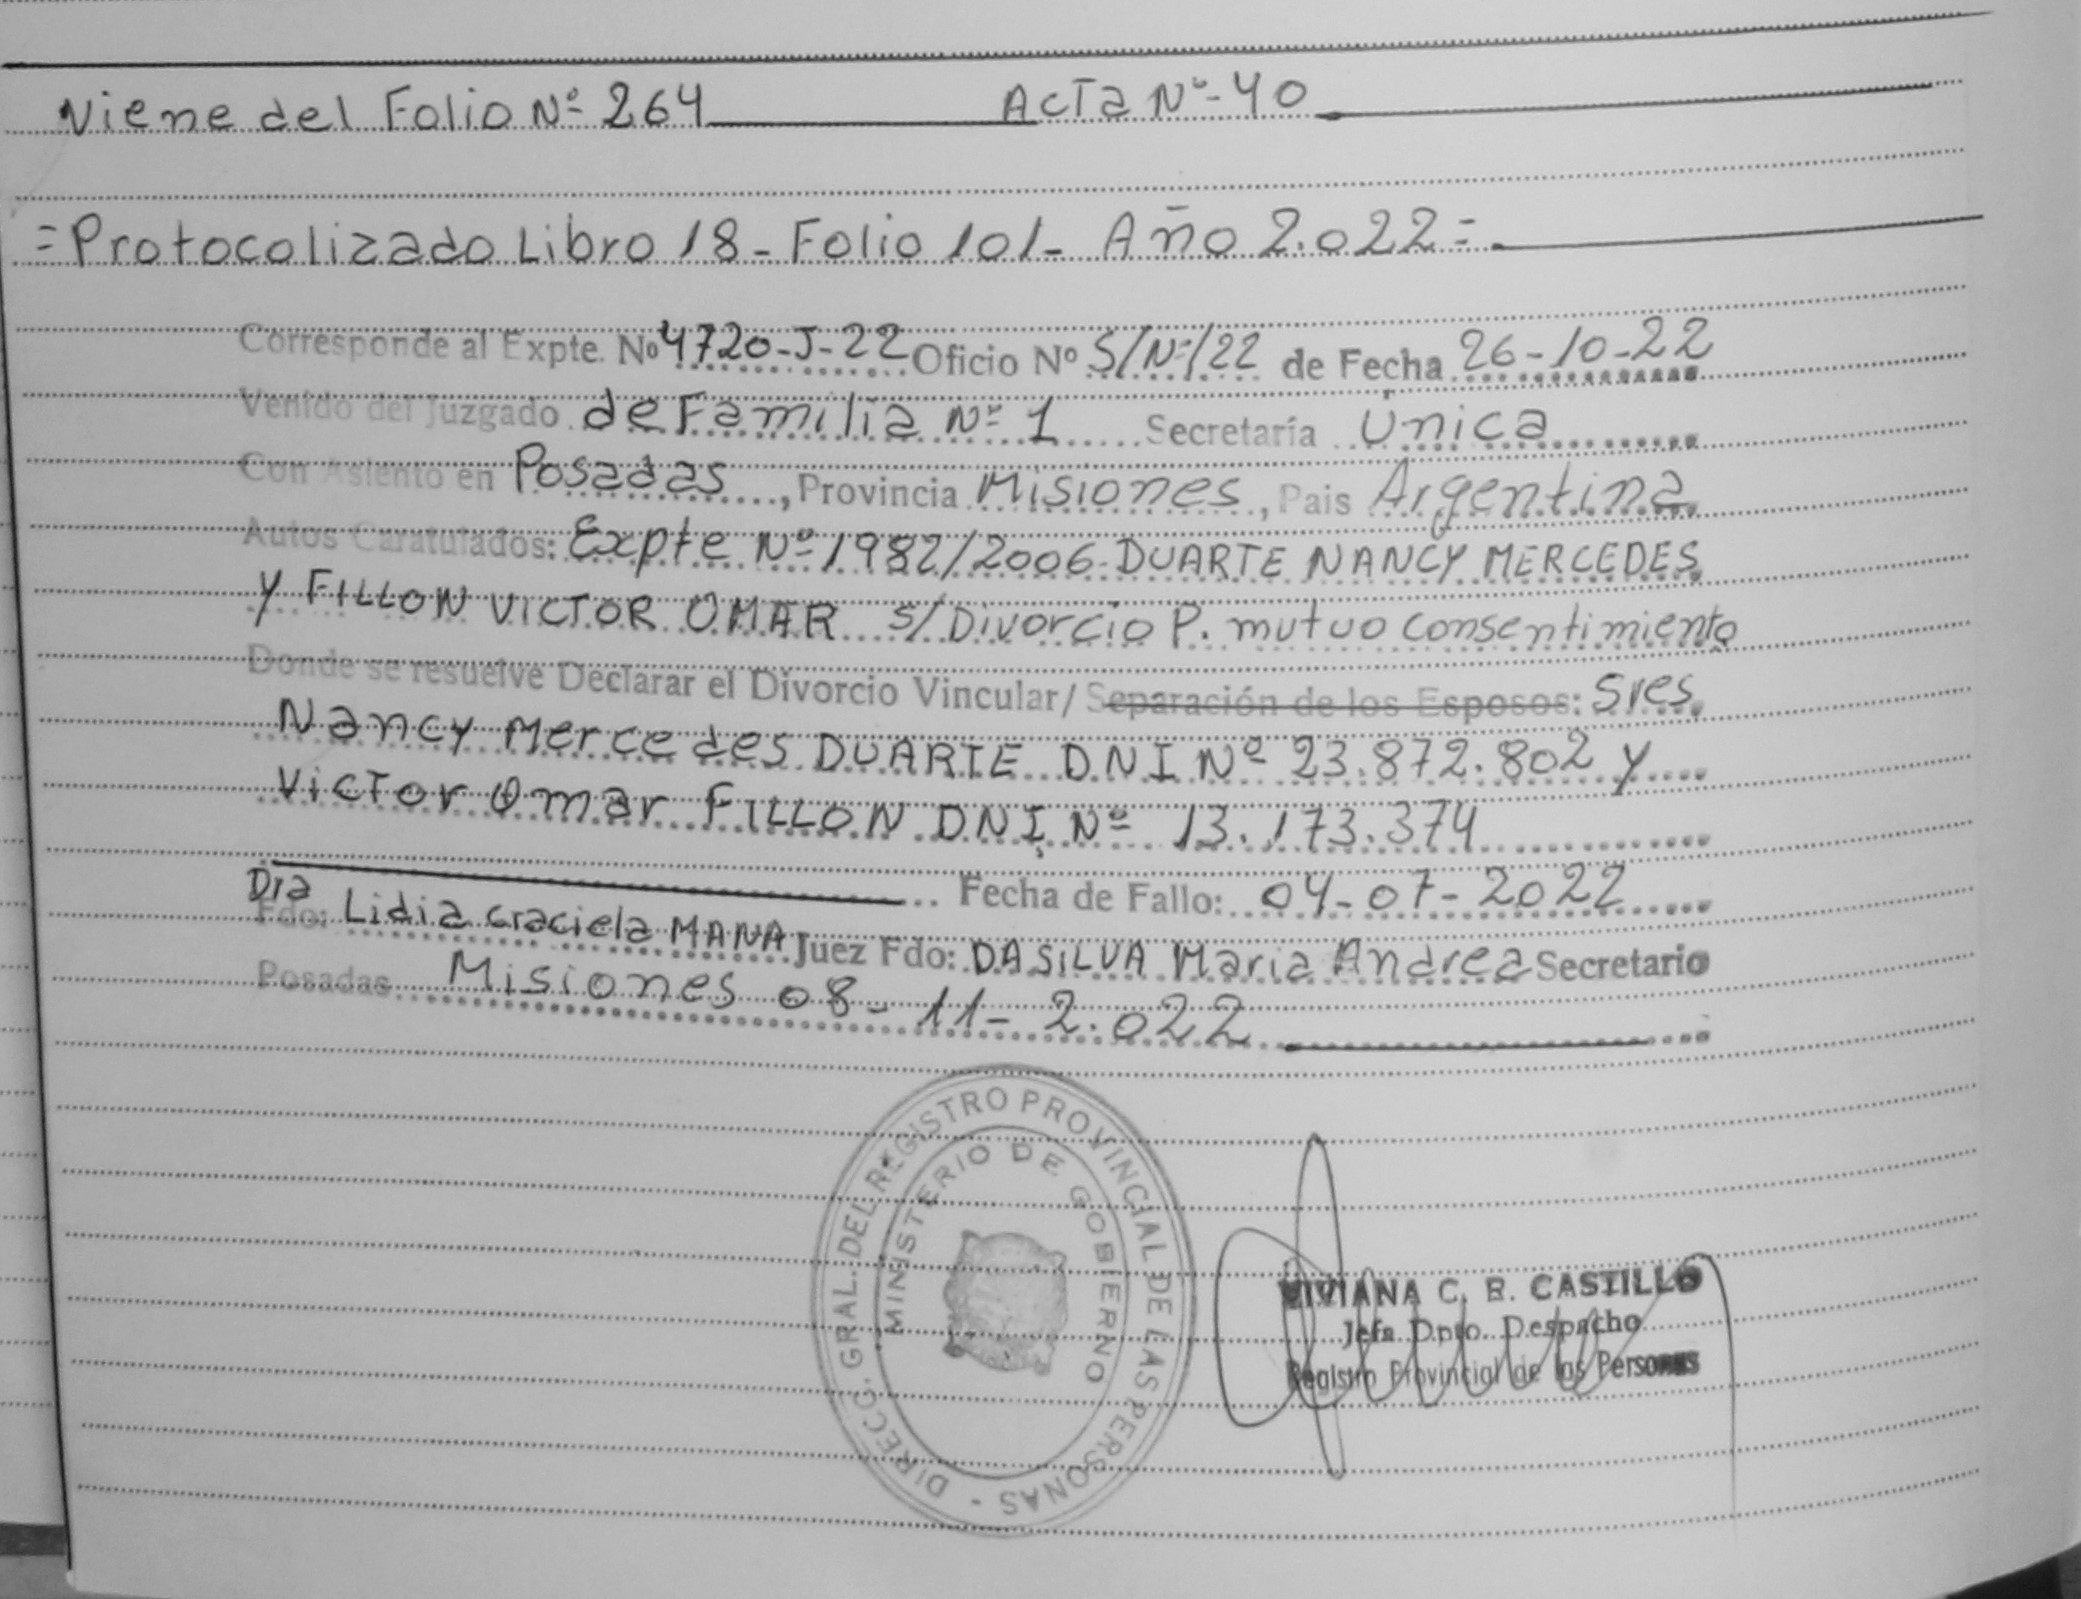 Viene del Folio Nº 264 Acta Nº-40
=Protocolizado Libro 18- Folio 101- Año 2.022=.
Corresponde al Expte. Nº 4720-J-22 Oficio Nº S/Nº/22 de Fecha 26-10-22
Venido del Juzgado de Familia Nº 1 Secretaría Única
Con Asiento en Posadas, Provincia Misiones, Pais Argentina.
Autos Caratulados: Expte Nº 1982/2006-DUARTE NANCY MERCEDES
Y FILLON VICTOR OMAR s/Divorcio P. mutuo consentimiento
Donde se resuelve Declarar el Divorcio Vincular/ Separación de los Esposos: Sres.
Nancy Mercedes DUARTE DNI Nº 23.872.802 y
Victor Omar FILLON DNI Nº 13.173.374
Fecha de Fallo: 04-07-2022
Dra
Fdo: Lidia Graciela MANA Juez Fdo: DASILVA Maria Andrea Secretario
Posadas Misiones 08-11-2.022
DIRECC. GRAL. DEL REGISTRO PROVINCIAL DE LAS PERSONAS -
MINISTERIO DE GOBIERNO
VIVIANA C. R. CASTILLO
Jefa Dpto. Despacho
Registro Provincial de las Personas